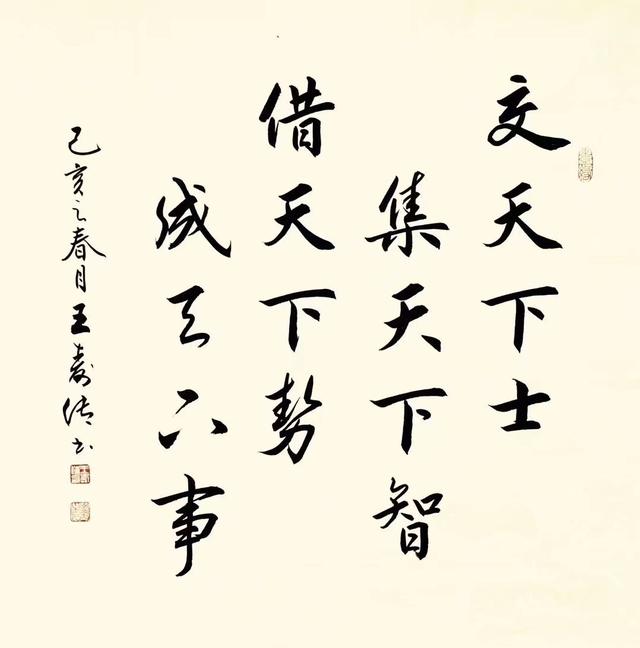 交天下士
集天下智
借天下势
成天下事
己亥之春月王寿传书